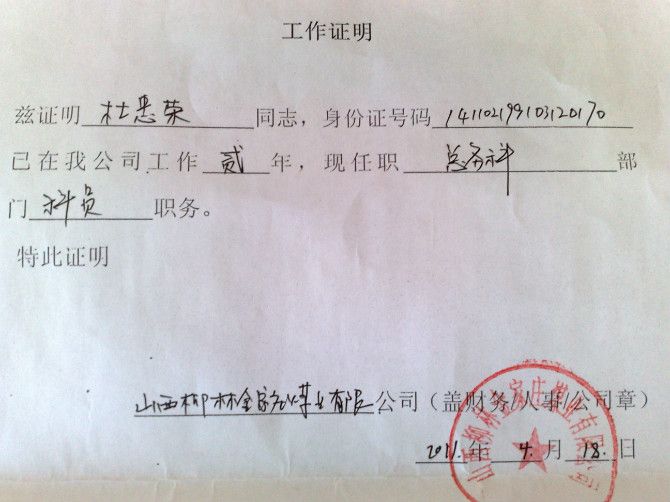 工作证明
兹证明 杜 荣 同志，身份证号码 141102199103120170
已在我公司工作 贰 年，现任职 总务科 部
门 科员 职务。
特此证明
山西柳林金家庄煤业有限公司（盖财务/人事/公司章）
2011.年 4.月 18.日
山西柳林金家庄煤业有限公司